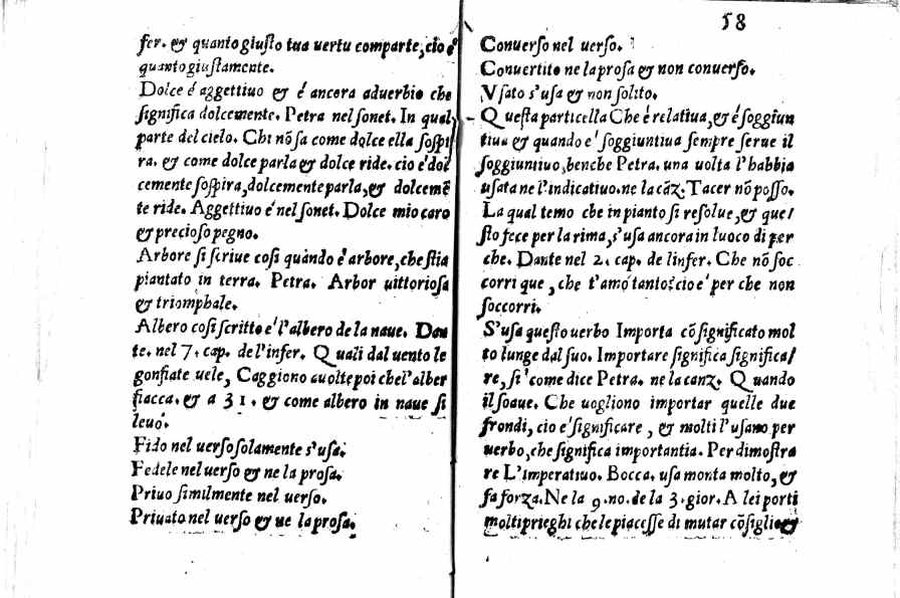 fer. & quanto giusto tua uertu comparte, cio e'
quanto giustamente.
Dolce é aggettiuo & é ancora aduerbio che
significa dolcemente. Petra nel sonet. In qual
parte del cielo. Chi nō sa come dolce ella sospi
ra. & come dolce parla & dolce ride. cio é dol
cemente sospira, dolcemente parla, & dolcemē
te ride. Aggettiuo é nel sonet. Dolce mio caro
& precioso pegno.
Arbore si scriue cosi quàndo é arbore, che stia
piantato in terra. Petra. Arbor uittoriosa
& triomphale.
Albero cosi scritto e' l'albero de la naue. Dan
te. nel 7. cap. de l'infer. Quali dal uento le
gonfiate uele, Caggiono auolte poi che l'alber
fiacca. & a 31. & come albero in naue si
leuó.
Fido nel uerso solamente s'usa.
Fedele nel uerso & ne la prosa.
Priuo similmente nel uerso.
Priuato nel uerso & ne la prosa.
58
Conuerso nel uerso.
Conuertito ne la prosa & non conuerso.
Vsato s'usa & non solito.
Questa particella Che é relatiua, & é soggiun
tiua & quando e' soggiuntiua sempre serue il
soggiuntiuo, benche Petra. una uolta l'habbia
usata ne l'indicatiuo. ne la cāz. Tacer nō posso.
La qual temo che in pianto si resolue, & que/
sto fece per la rima, s'usa ancora in luoco di per
che. Dante nel 2. cap. de l'infer. Che nō soc
corri que, che t'amó tanto: cio e' per che non
soccorri.
S'usa questo uerbo Importa cō significato mol
to lunge dal suo. Importare significa significa/
re, si' come dice Petra. ne la canz. Quando
il soaue. Che uogliono importar quelle due
frondi, cio e' significare, & molti l'usano per
uerbo, che significa importantia. Per dimostra
re L'Imperatiuo. Bocca. usa monta molto, &
fa forza. Ne la 9. no. de la 3. gior. A lei porti
molti prieghi che le piacesse di mutar cōsiglio &